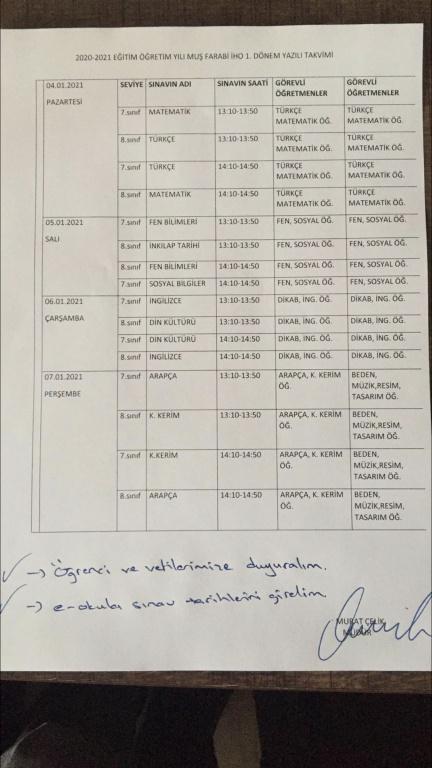 2020-2021 EĞİTİM ÖĞRETİM YILI MUŞ FARABİ İHO 1. DÖNEM YAZILI TAKVİMİ
04.01.2021 SEVİYE SINAVIN ADI SINAVIN SAATİ GÖREVLİ GÖREVLİ
PAZARTESİ ÖĞRETMENLER ÖĞRETMENLER
7.sınıf MATEMATİK 13:10-13:50 TÜRKÇE TÜRKÇE
MATEMATİK ÖĞ. MATEMATİK ÖĞ.
8.sınıf TÜRKÇE 13:10-13:50 TÜRKÇE TÜRKÇE
MATEMATİK ÖĞ. MATEMATİK ÖĞ.
7.sınıf TÜRKÇE 14:10-14:50 TÜRKÇE TÜRKÇE
MATEMATİK ÖĞ. MATEMATİK ÖĞ.
8.sınıf MATEMATİK 14:10-14:50 TÜRKÇE TÜRKÇE
MATEMATİK ÖĞ. MATEMATİK ÖĞ.
05.01.2021 7.sınıf FEN BİLİMLERİ 13:10-13:50 FEN, SOSYAL ÖĞ. FEN, SOSYAL ÖĞ.
SALI
8.sınıf İNKILAP TARİHİ 13:10-13:50 FEN, SOSYAL ÖĞ. FEN, SOSYAL ÖĞ.
8.sınıf FEN BİLİMLERİ 14:10-14:50 FEN, SOSYAL ÖĞ. FEN, SOSYAL ÖĞ.
7.sınıf SOSYAL BİLGİLER 14:10-14:50 FEN, SOSYAL ÖĞ. FEN, SOSYAL ÖĞ.
06.01.2021 7.sınıf İNGİLİZCE 13:10-13:50 DİKAB, İNG. ÖĞ. DİKAB, İNG. ÖĞ.
ÇARŞAMBA 8.sınıf DİN KÜLTÜRÜ 13:10-13:50 DİKAB, İNG. ÖĞ. DİKAB, İNG. ÖĞ.
7.sınıf DİN KÜLTÜRÜ 14:10-14:50 DİKAB, İNG. ÖĞ. DİKAB, İNG. ÖĞ.
8.sınıf İNGİLİZCE 14:10-14:50 DİKAB, İNG. ÖĞ. DİKAB, İNG. ÖĞ.
07.01.2021 7.sınıf ARAPÇA 13:10-13:50 ARAPÇA, K. KERİM BEDEN,
PERŞEMBE ÖĞ. MÜZİK,RESİM,
TASARIM ÖĞ.
8.sınıf K. KERİM 13:10-13:50 ARAPÇA, K. KERİM BEDEN,
ÖĞ. MÜZİK,RESİM,
TASARIM ÖĞ.
7.sınıf K.KERİM 14:10-14:50 ARAPÇA, K. KERİM BEDEN,
ÖĞ. MÜZİK,RESİM,
TASARIM ÖĞ.
8.sınıf ARAPÇA 14:10-14:50 ARAPÇA, K. KERİM BEDEN,
ÖĞ. MÜZİK,RESİM,
TASARIM ÖĞ.
→ Öğrenci ve velilerimize duyuralım.
→ e-okula sınav tarihlerini girelim
MURAT ÇELİK
MÜDÜR